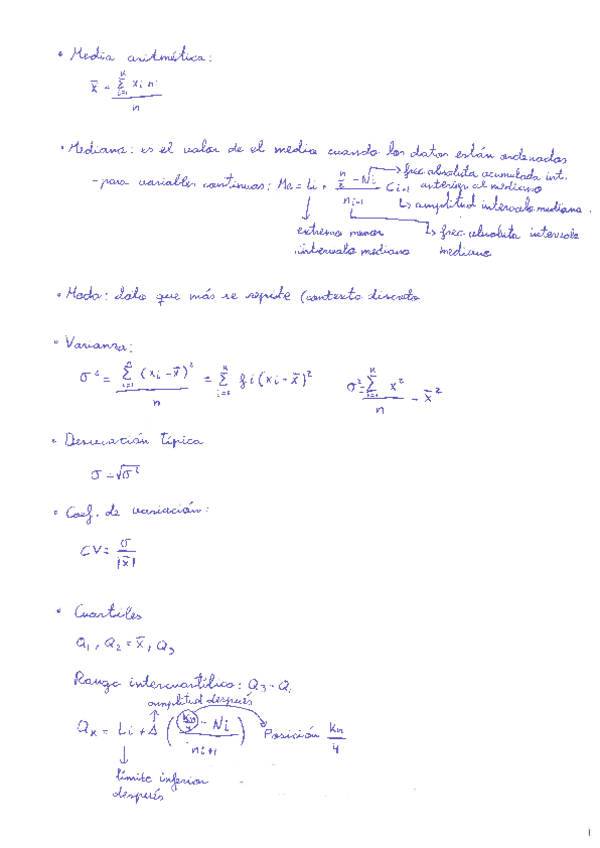 • Media aritmética:
x̄ = Σ_{i=1}^{k} xi ni / n
• Mediana: es el valor de el medio cuando los datos están ordenados
- para variables continuas: Me = Li + (n/2 - Ni) / ni+1 Ci+1
→ frec. absoluta acumulada int. anterior al mediano
↳ amplitud intervalo mediana.
↳ frec. absoluta intervalo mediano
extremo menor
intervalo mediano
• Moda: dato que más se repite (contexto discreto
• Varianza:
σ² = Σ_{i=1} (xi - x̄)² / n = Σ_{i=1}^{k} fi (xi - x̄)²   σ² = Σ_{i=1}^{k} x² / n - x̄²
• Desviación típica
σ = √σ²
• Coef. de variación:
CV = σ / |x̄|
• Cuartiles
Q1, Q2 = x̄, Q3
Rango intercuartílico: Q3 - Q1
amplitud después
Qk = Li + Δ ((kn/4 - Ni) / ni+1) Posición kn/4
límite inferior
después
1